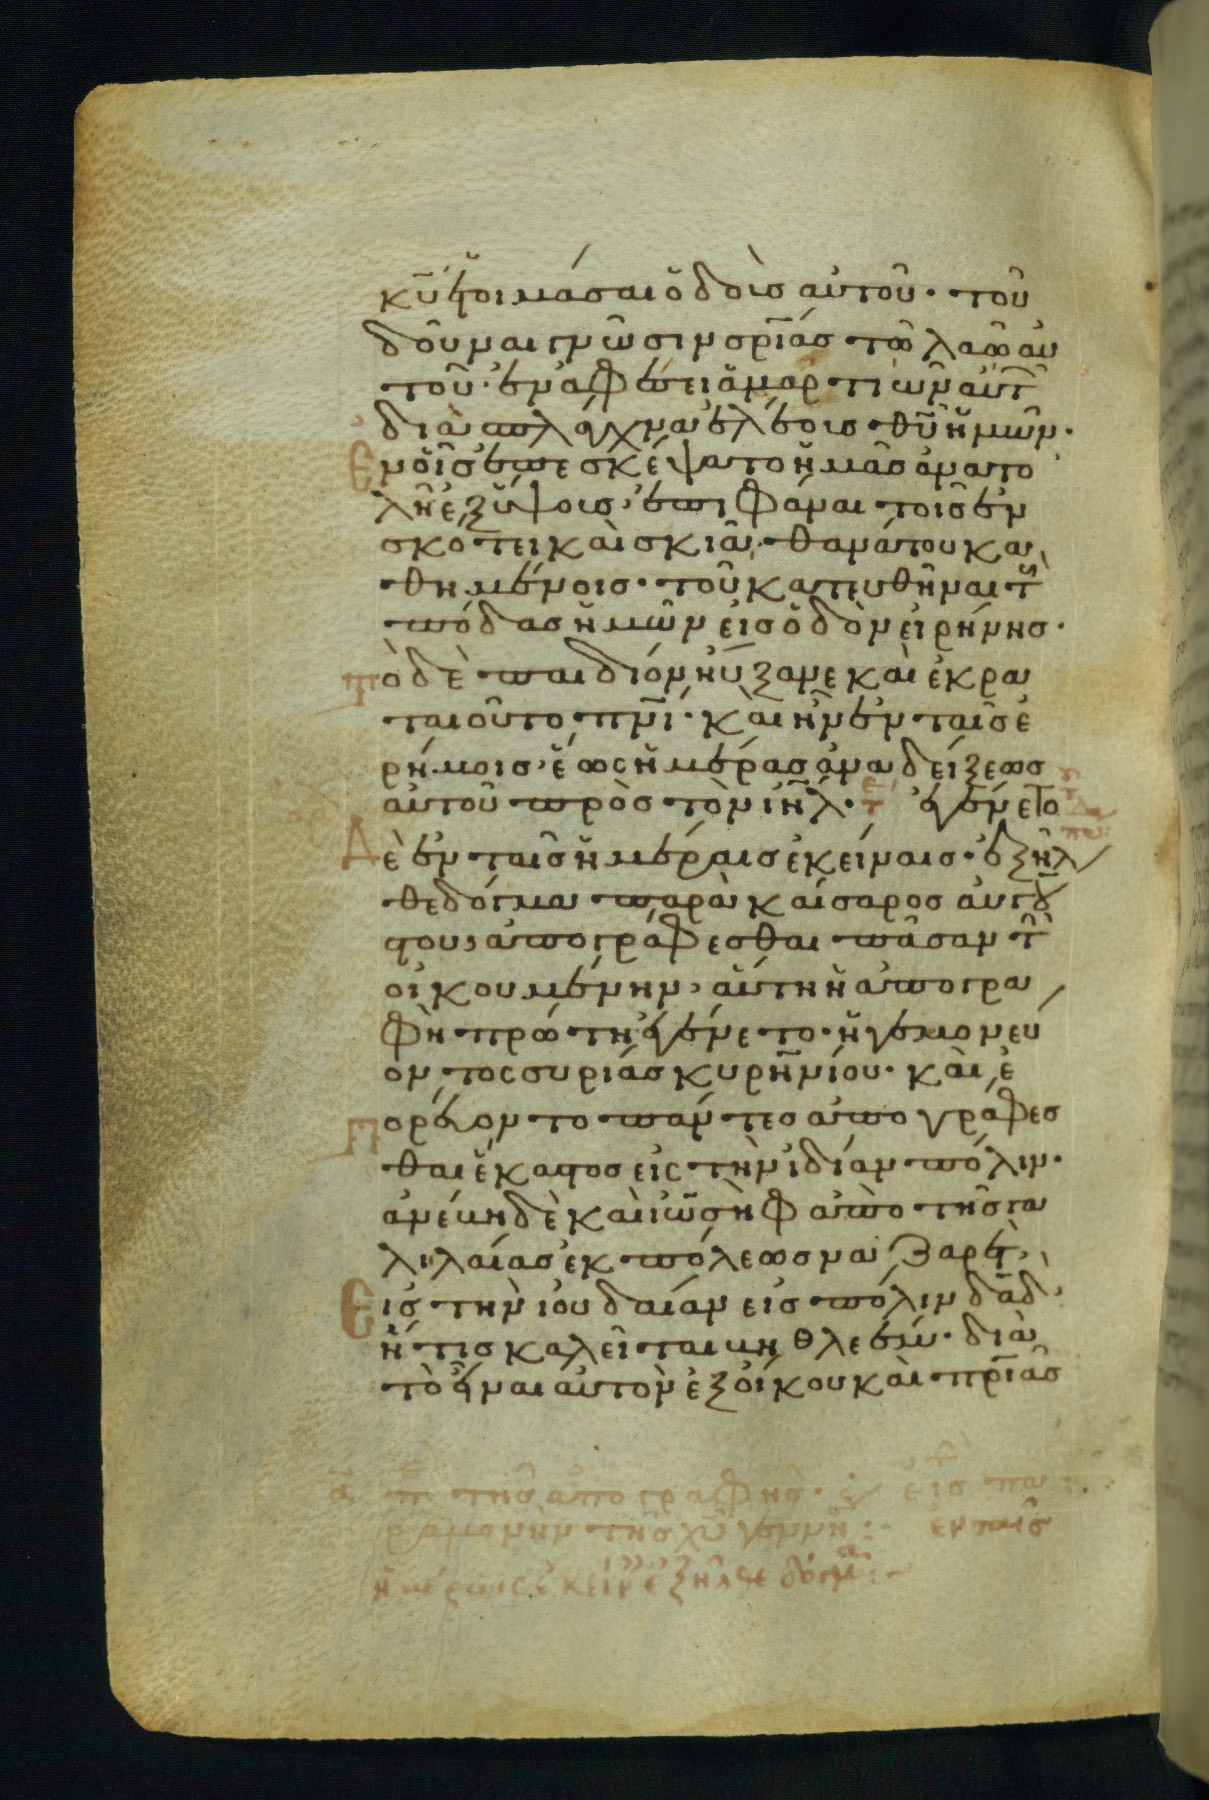 κῦ ἑτοιμάσαι ὁδοὺς αὐτοῦ· τοῦ
δοῦναι γνῶσιν σρίας τῶ λαῶ αὐ
τοῦ· ἐν ἀφέσει ἁμαρτιῶν αὐτ
διὰ σπλάγχνα ἐλέους θῦ ἡμῶν·
Ἐν οἷς ἐπεσκέψατο ἡμᾶς ἀνατο
λὴ ἐξ ὕψους· ἐπιφάναι τοῖς ἐν
σκότει καὶ σκιᾶ θανάτου κα
θημένοις· τοῦ κατευθῆναι τ
πόδας ἡμῶν εἰς ὁδὸν εἰρήνης·
Τὸ δὲ παιδίον ηὔξανε καὶ ἐκρα
ταιοῦτο πνι· καὶ ἦν ἐν ταῖς ἐ
ρήμοις· ἕως ἡμέρας ἀναδείξεως
αὐτοῦ πρὸς τὸν ιηλ· τε ἐγένετο
Δὲ ἐν ταῖς ἡμέραις ἐκείναις· ἐξῆλ
θε δόγμα παρὰ καίσαρος αὐγού
στου, ἀπογράφεσθαι πᾶσαν τὴν
οἰκουμένην, αὕτη ἡ ἀπογρα
φὴ πρώτη ἐγένετο· ἡγεμονεύ
οντος συρίας κυρηνίου· καὶ ἐ
Πορεύοντο πάντες ἀπογράφεσ
θαι ἕκαστος εἰς τὴν ἰδίαν πόλιν·
ἀνέβη δὲ καὶ ἰωσὴφ ἀπὸ τῆς γα
λιλαίας ἐκ πόλεως ναζαρέτ,
Εἰς τὴν ἰουδαίαν εἰς πόλιν δαδ·
ἥτις καλεῖται βηθλεέμ· διὰ
τὸ εἶναι αὐτὸν ἐξ οἴκου καὶ πριᾶς
α π τῆς ἀπογραφῆς· εἰς πα
ραμονὴν τῆς χυ γεννη: ἐν ταῖς
ἡμέραις ἐκείν ἐξῆλθε δόγμα: